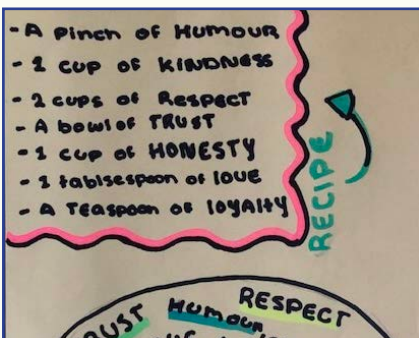 - A Pinch of Humour
- 1 cup of KINDNESS
- 2 cups of Respect
- A bowl of TRUST
- 1 cup of HONESTY
- 1 tablsespoon of love
- A Teaspoon of loyalty
RECIPE
Humour
RESPECT